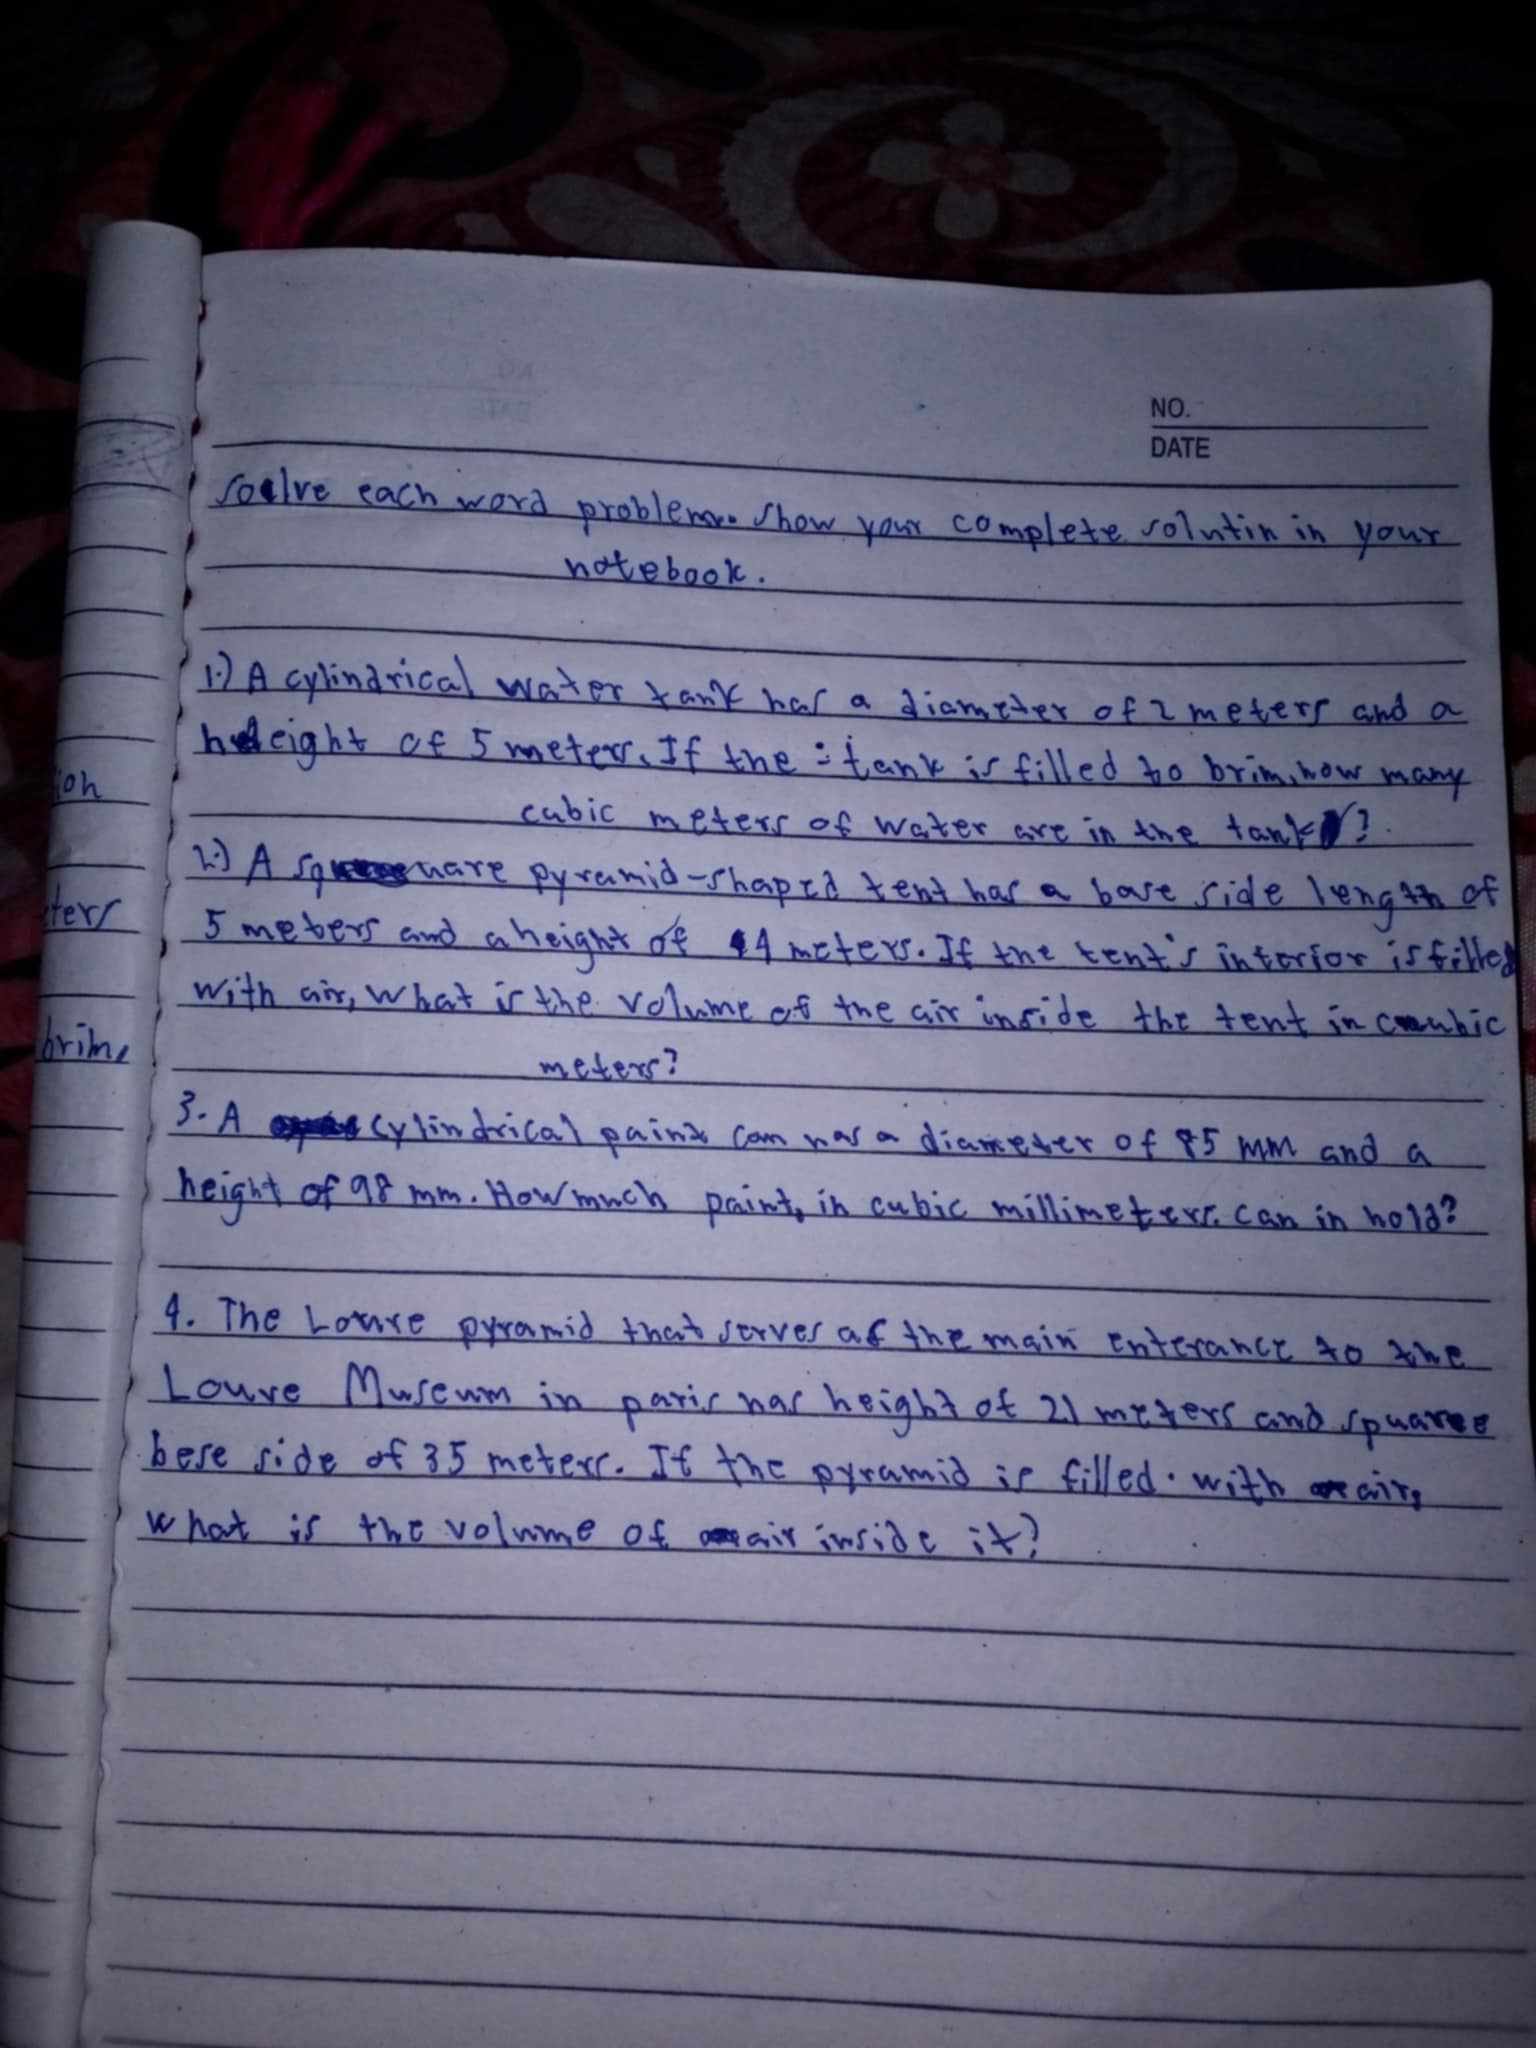 NO.
DATE
soelve each word problem. Show your complete solutin in your
notebook.
1.) A cylindrical water tank has a diameter of 2 meters and a
height of 5 meters. If the : tank is filled to brim, how many
cubic meters of water are in the tank?
2.) A square pyramid-shaped tent has a base side length of
5 meters and a height of 4 meters. If the tent's interior is filled
with air, what is the volume of the air inside the tent in cubic
meters?
3. A cylindrical paint can has a diameter of 85 mm and a
height of 98 mm. How much paint, in cubic millimeters. can in hold?
4. The Louvre pyramid that serves as the main enterance to the
Louve Museum in paris has height of 21 meters and spuaree
bese side of 35 meters. If the pyramid is filled. with air,
what is the volume of air inside it?
ion
eters
brim,